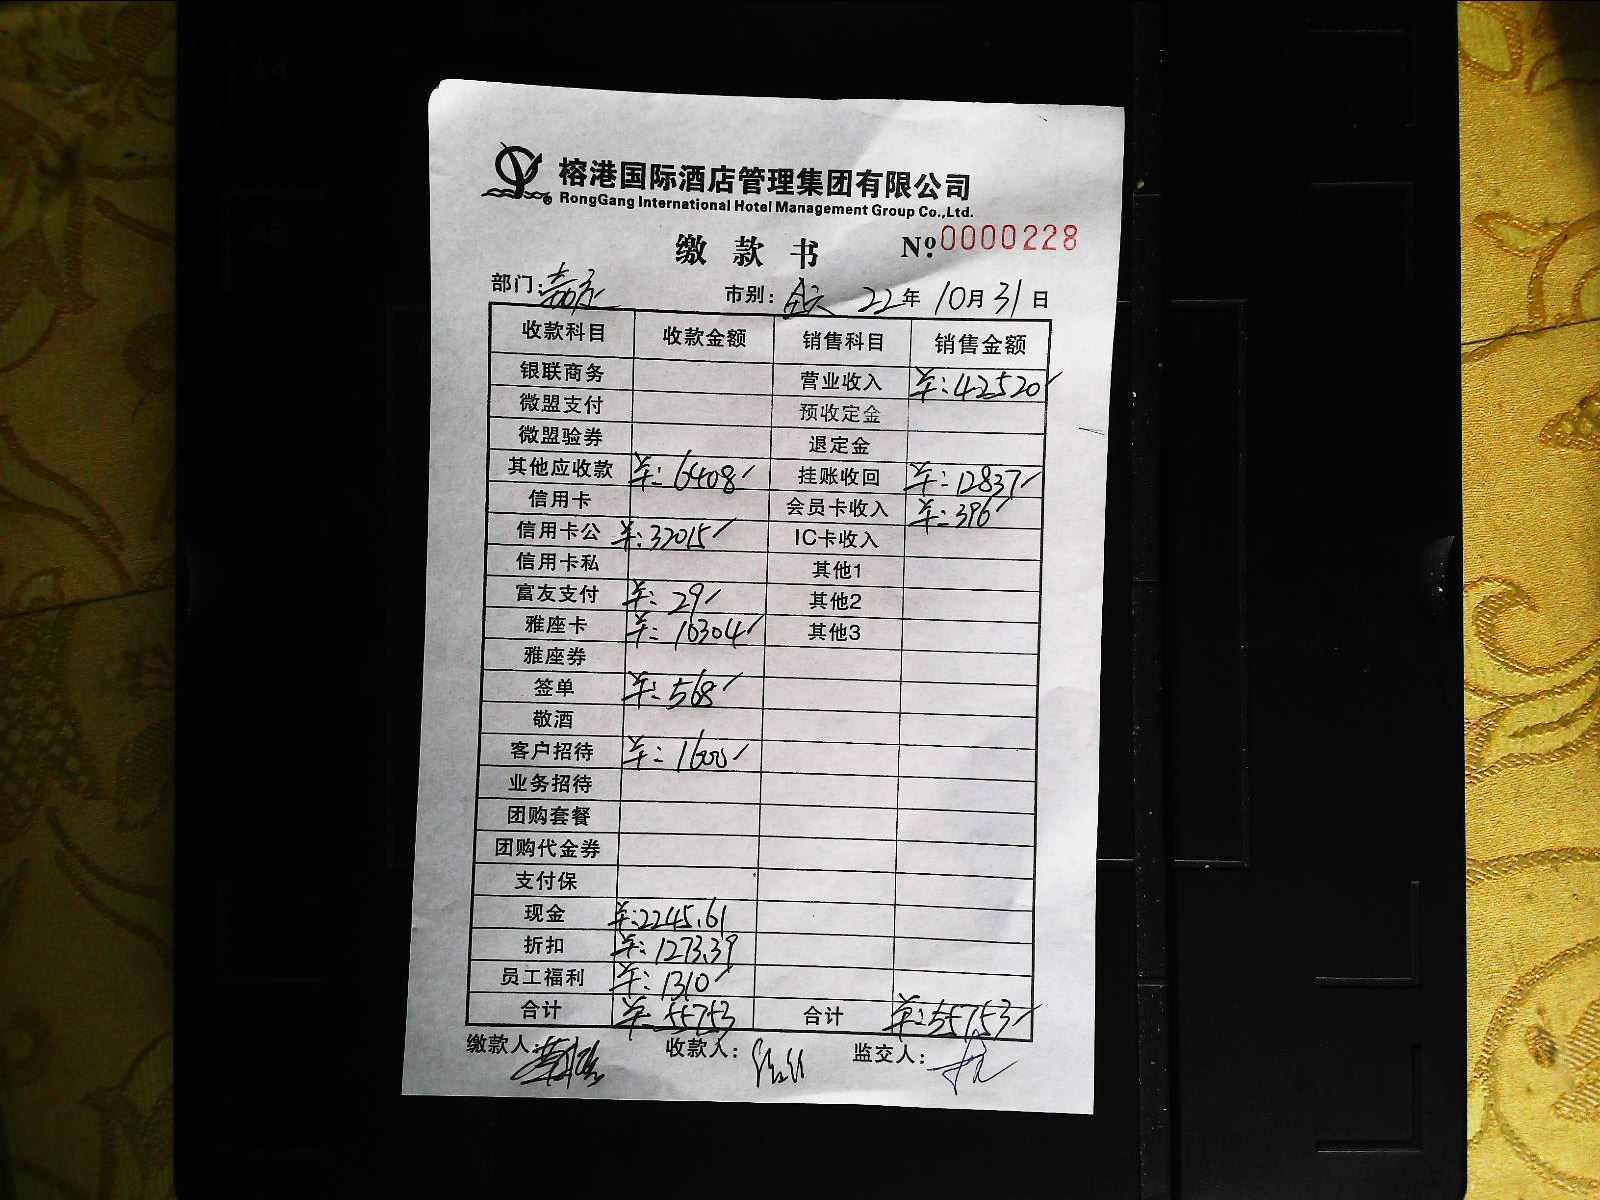 榕港国际酒店管理集团有限公司
RongGang International Hotel Management Group Co.,Ltd.
缴款书 Nº 0000228
部门: 市别: 22年 10月 31日
收款科目 收款金额 销售科目 销售金额
银联商务 营业收入 ¥:42520
微盟支付 预收定金
微盟验券 退定金
其他应收款 ¥:6408 挂账收回 ¥:12837
信用卡 会员卡收入 ¥:396
信用卡公 ¥:32015 IC卡收入
信用卡私 其他1
富友支付 ¥:29 其他2
雅座卡 ¥:10304 其他3
雅座券
签单 ¥:568
敬酒
客户招待 ¥:1600
业务招待
团购套餐
团购代金券
支付保
现金 ¥:2245.61
折扣 ¥:1273.39
员工福利 ¥:1310
合计 ¥:55753 合计 ¥:55753
缴款人: 收款人: 监交人: